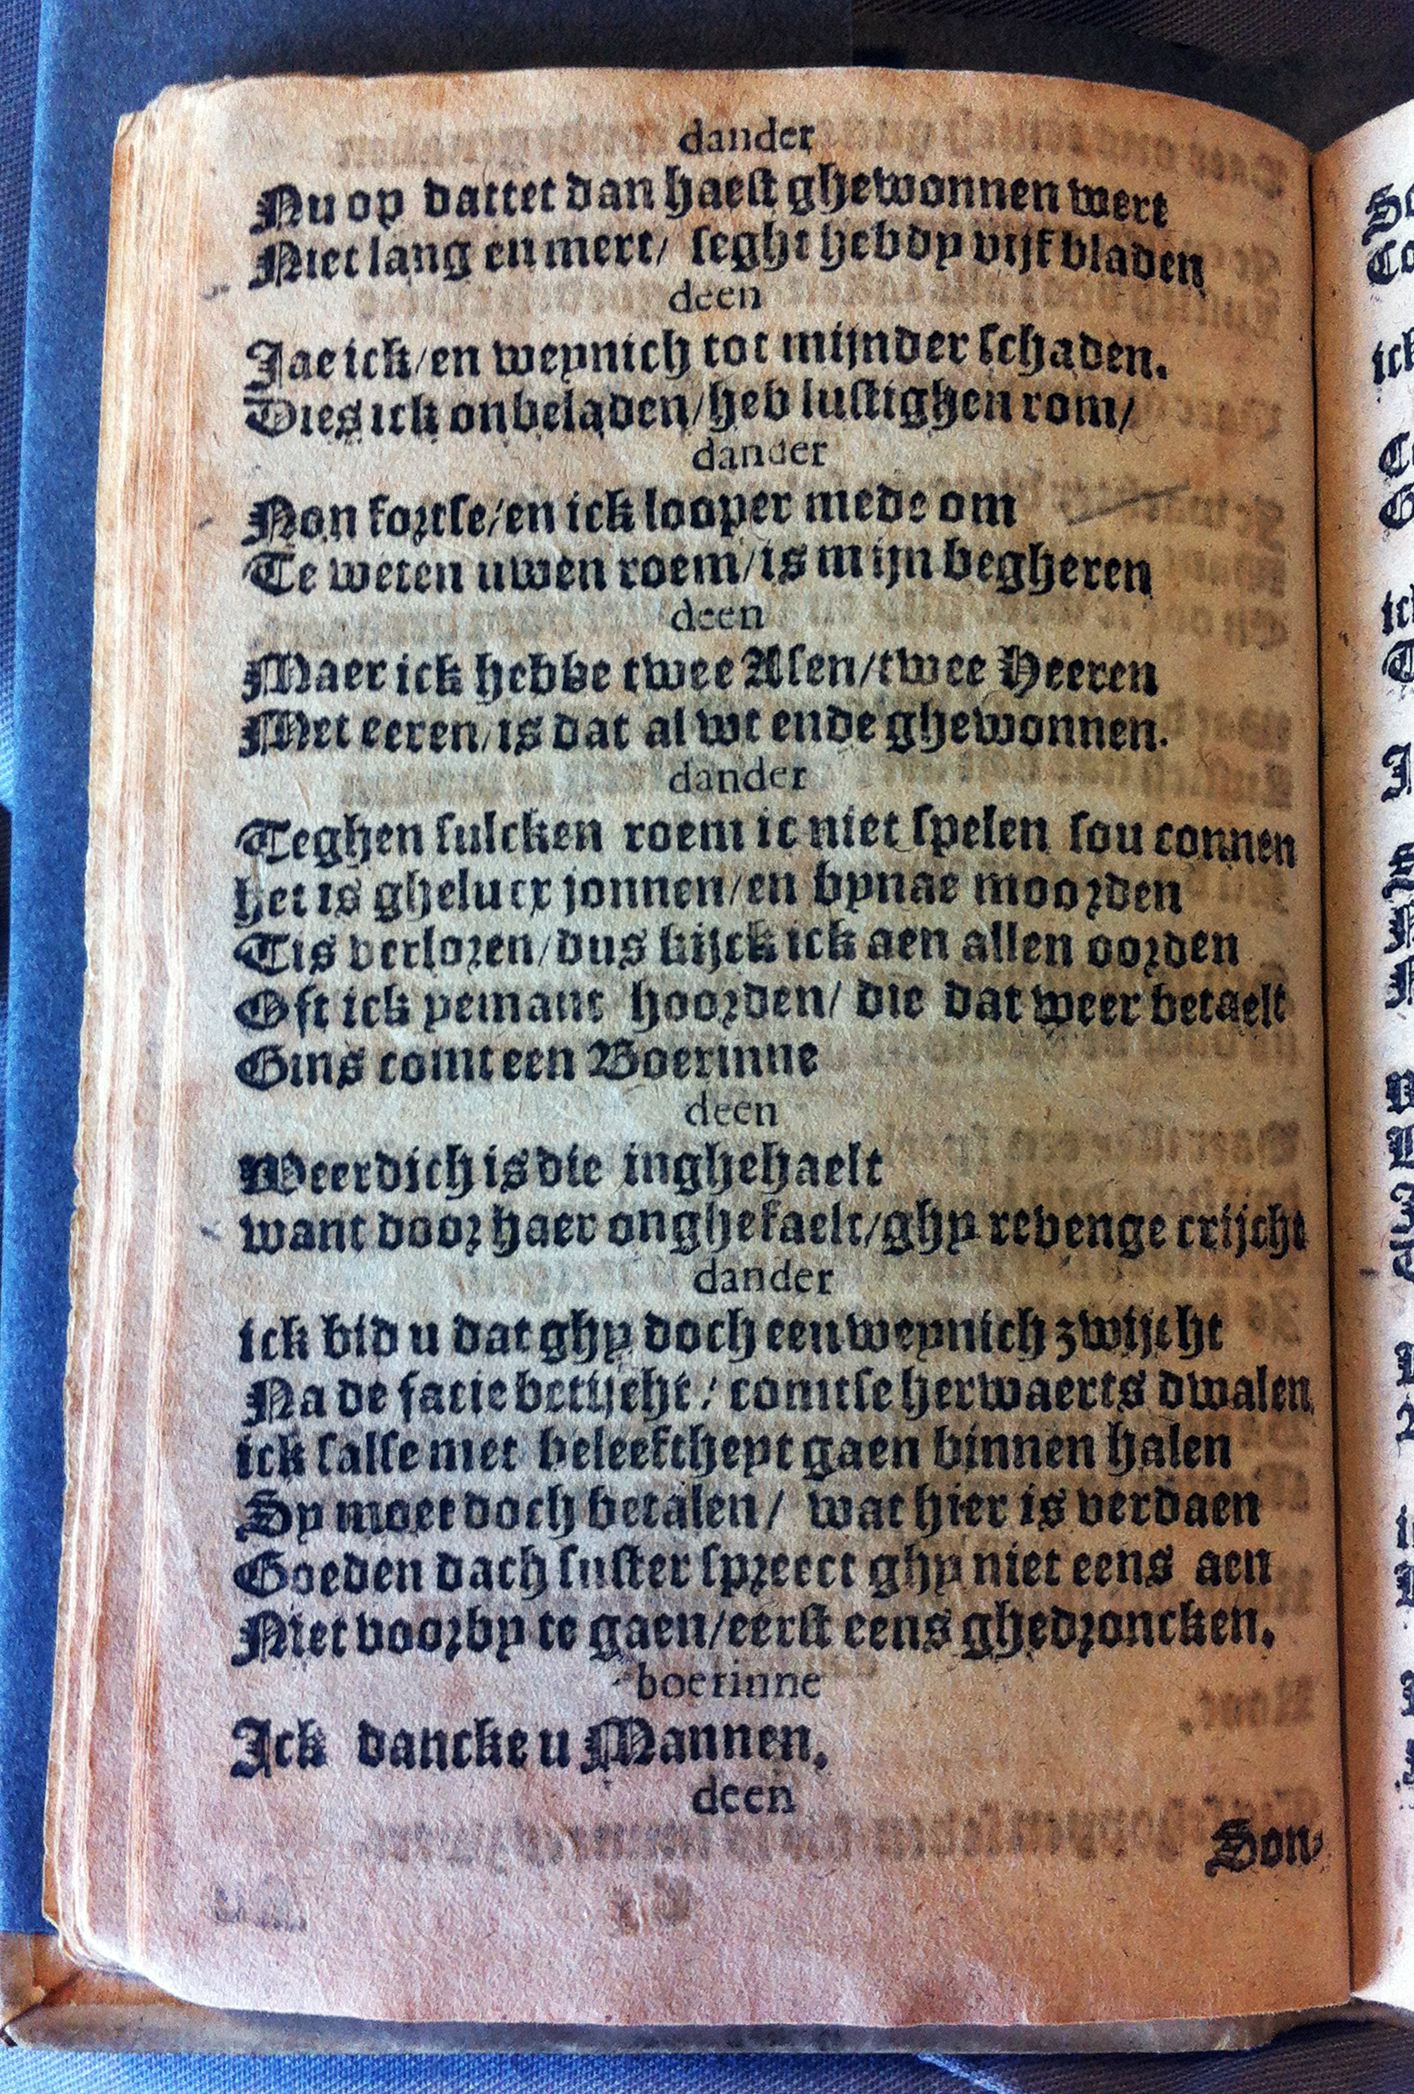 dander
Nu op dattet dan haest ghewonnen wert
Niet lang en mert/ seght hebdy vijf bladen
deen
Jae ick/en weynich tot mijnder schaden.
Dies ick onbeladen/heb lustighen rom/
dander
Non fortse/en ick looper mede om
Te weten uwen roem/is mijn begheren
deen
Maer ick hebbe twee Asen/twee Heeren
Met eeren/is dat al wt ende ghewonnen.
dander
Teghen sulcken roem ic niet spelen sou connen
het is ghelucx jonnen/en bynae moorden
Tis verloren/dus kijck ick aen allen oorden
Oft ick yemant hoorden/ die dat weer betaelt
Gins comt een Boerinne
deen
Weerdich is die inghehaelt
want door haer onghefaelt/ghy revenge crijcht
dander
ick bid u dat ghy doch een weynich zwijcht
Na de facie betijcht/ comtse herwaerts dwalen
ick salse met beleeftheyt gaen binnen halen
Sy moet doch betalen/ wat hier is verdaen
Goeden dach suster spreect ghy niet eens aen
Niet voorby te gaen/eerst eens ghedroncken.
boerinne
Ick dancke u Mannen.
deen
Son-